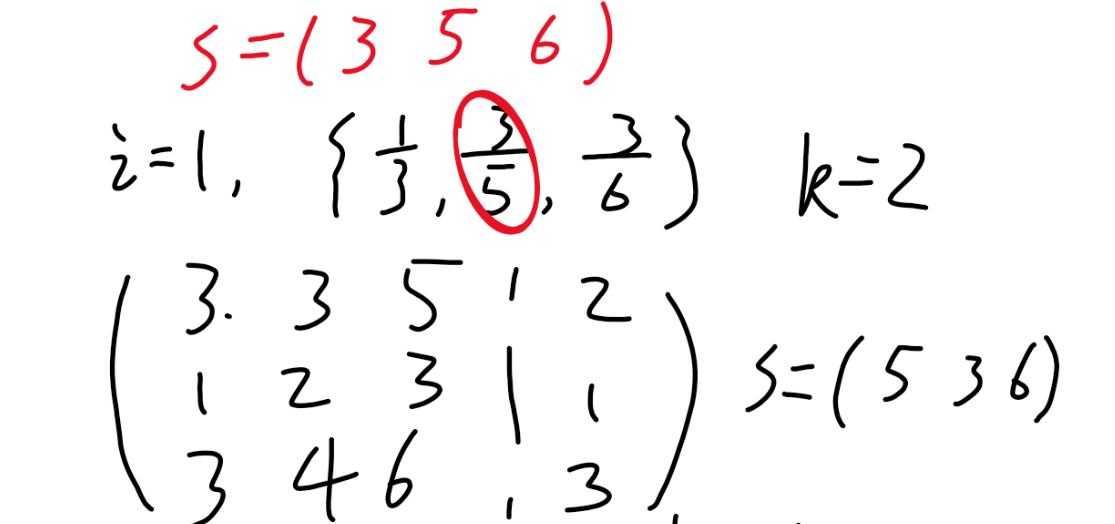 s=(3 5 6)
i=1, {1/3, 3/5, 3/6} k=2
(3. 3 5 | 2
1 2 3 | 1
3 4 6 | 3) s=(5 3 6)